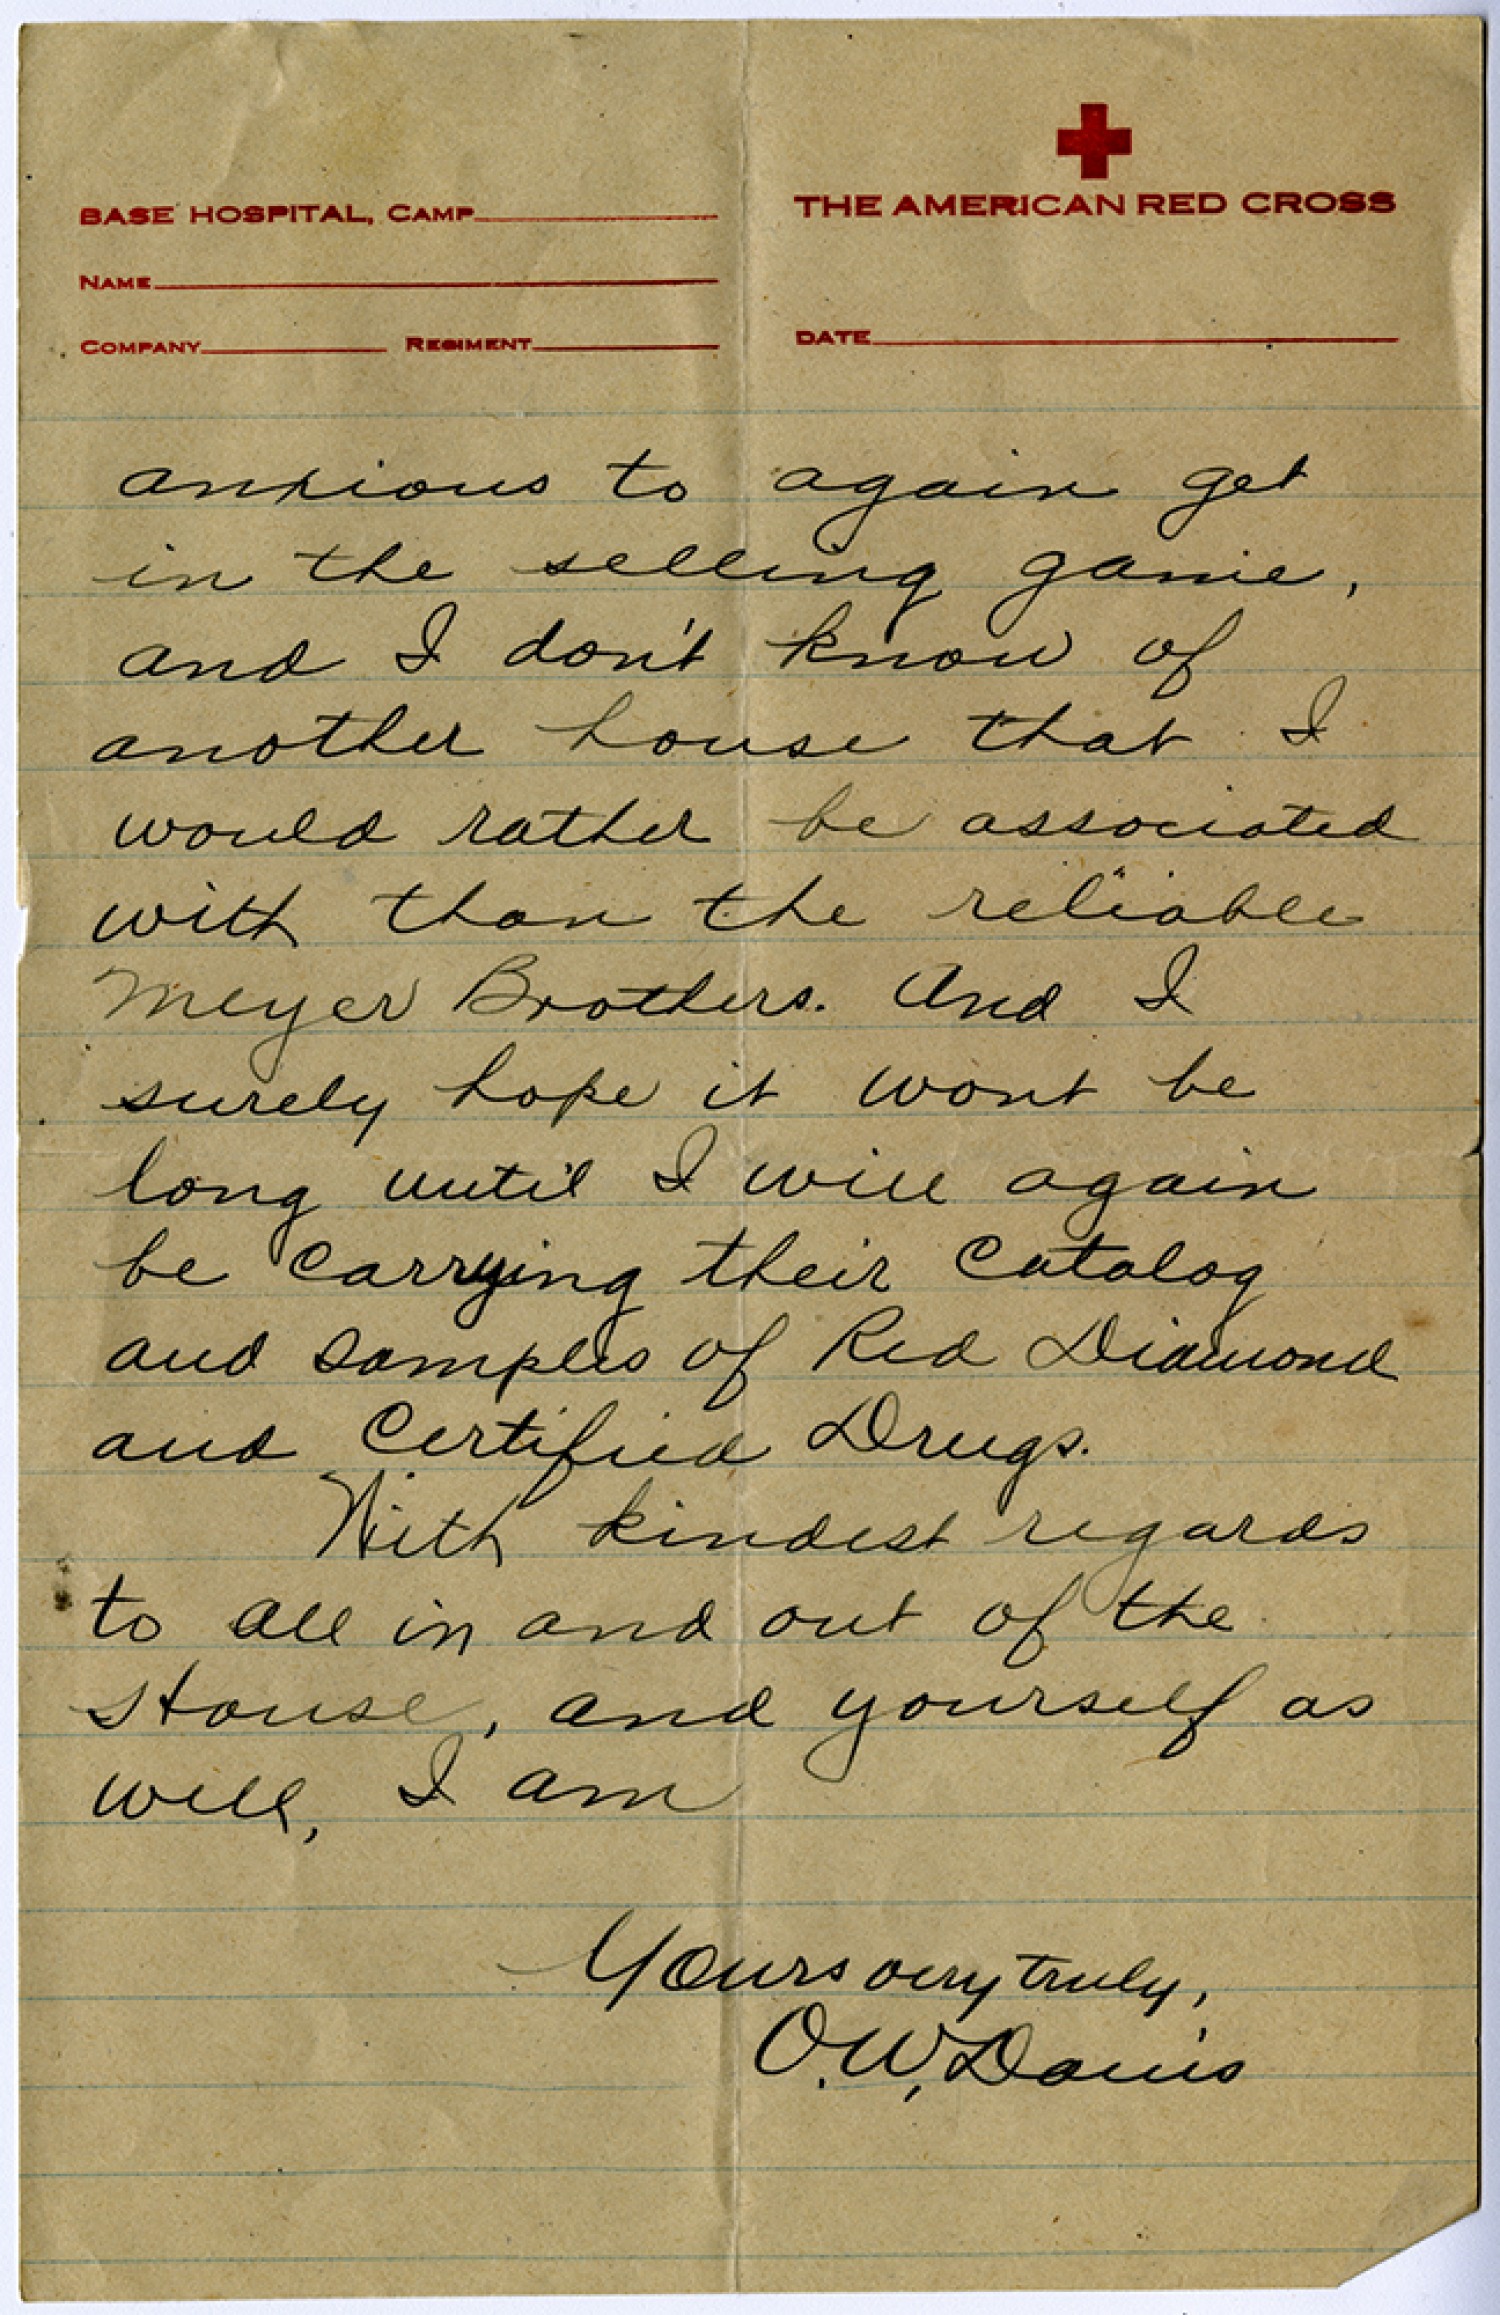 BASE HOSPITAL, CAMP
THE AMERICAN RED CROSS
NAME
COMPANY REGIMENT
DATE
anxious to again get
in the selling game,
and I don't know of
another house that I
would rather be associated
with than the reliable
Meyer Brothers. And I
surely hope it wont be
long until I will again
be carrying their catalog
and samples of Red Diamond
and Certified Drugs.
With kindest regards
to all in and out of the
House, and yourself as
well, I am
Yours very truly,
O.W. Davis